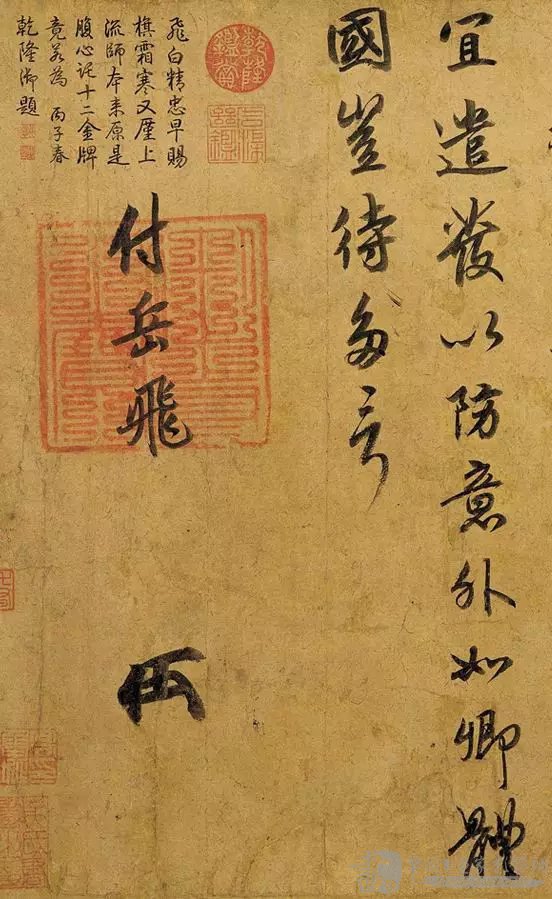 宜遣發以防意外如卿體
國豈待多言
付岳飛
飛白精忠早賜
旗霜寒又屋上
流師本來原是
腹心託十二金牌
竟若為 丙子春
乾隆御題
乾隆鑑賞